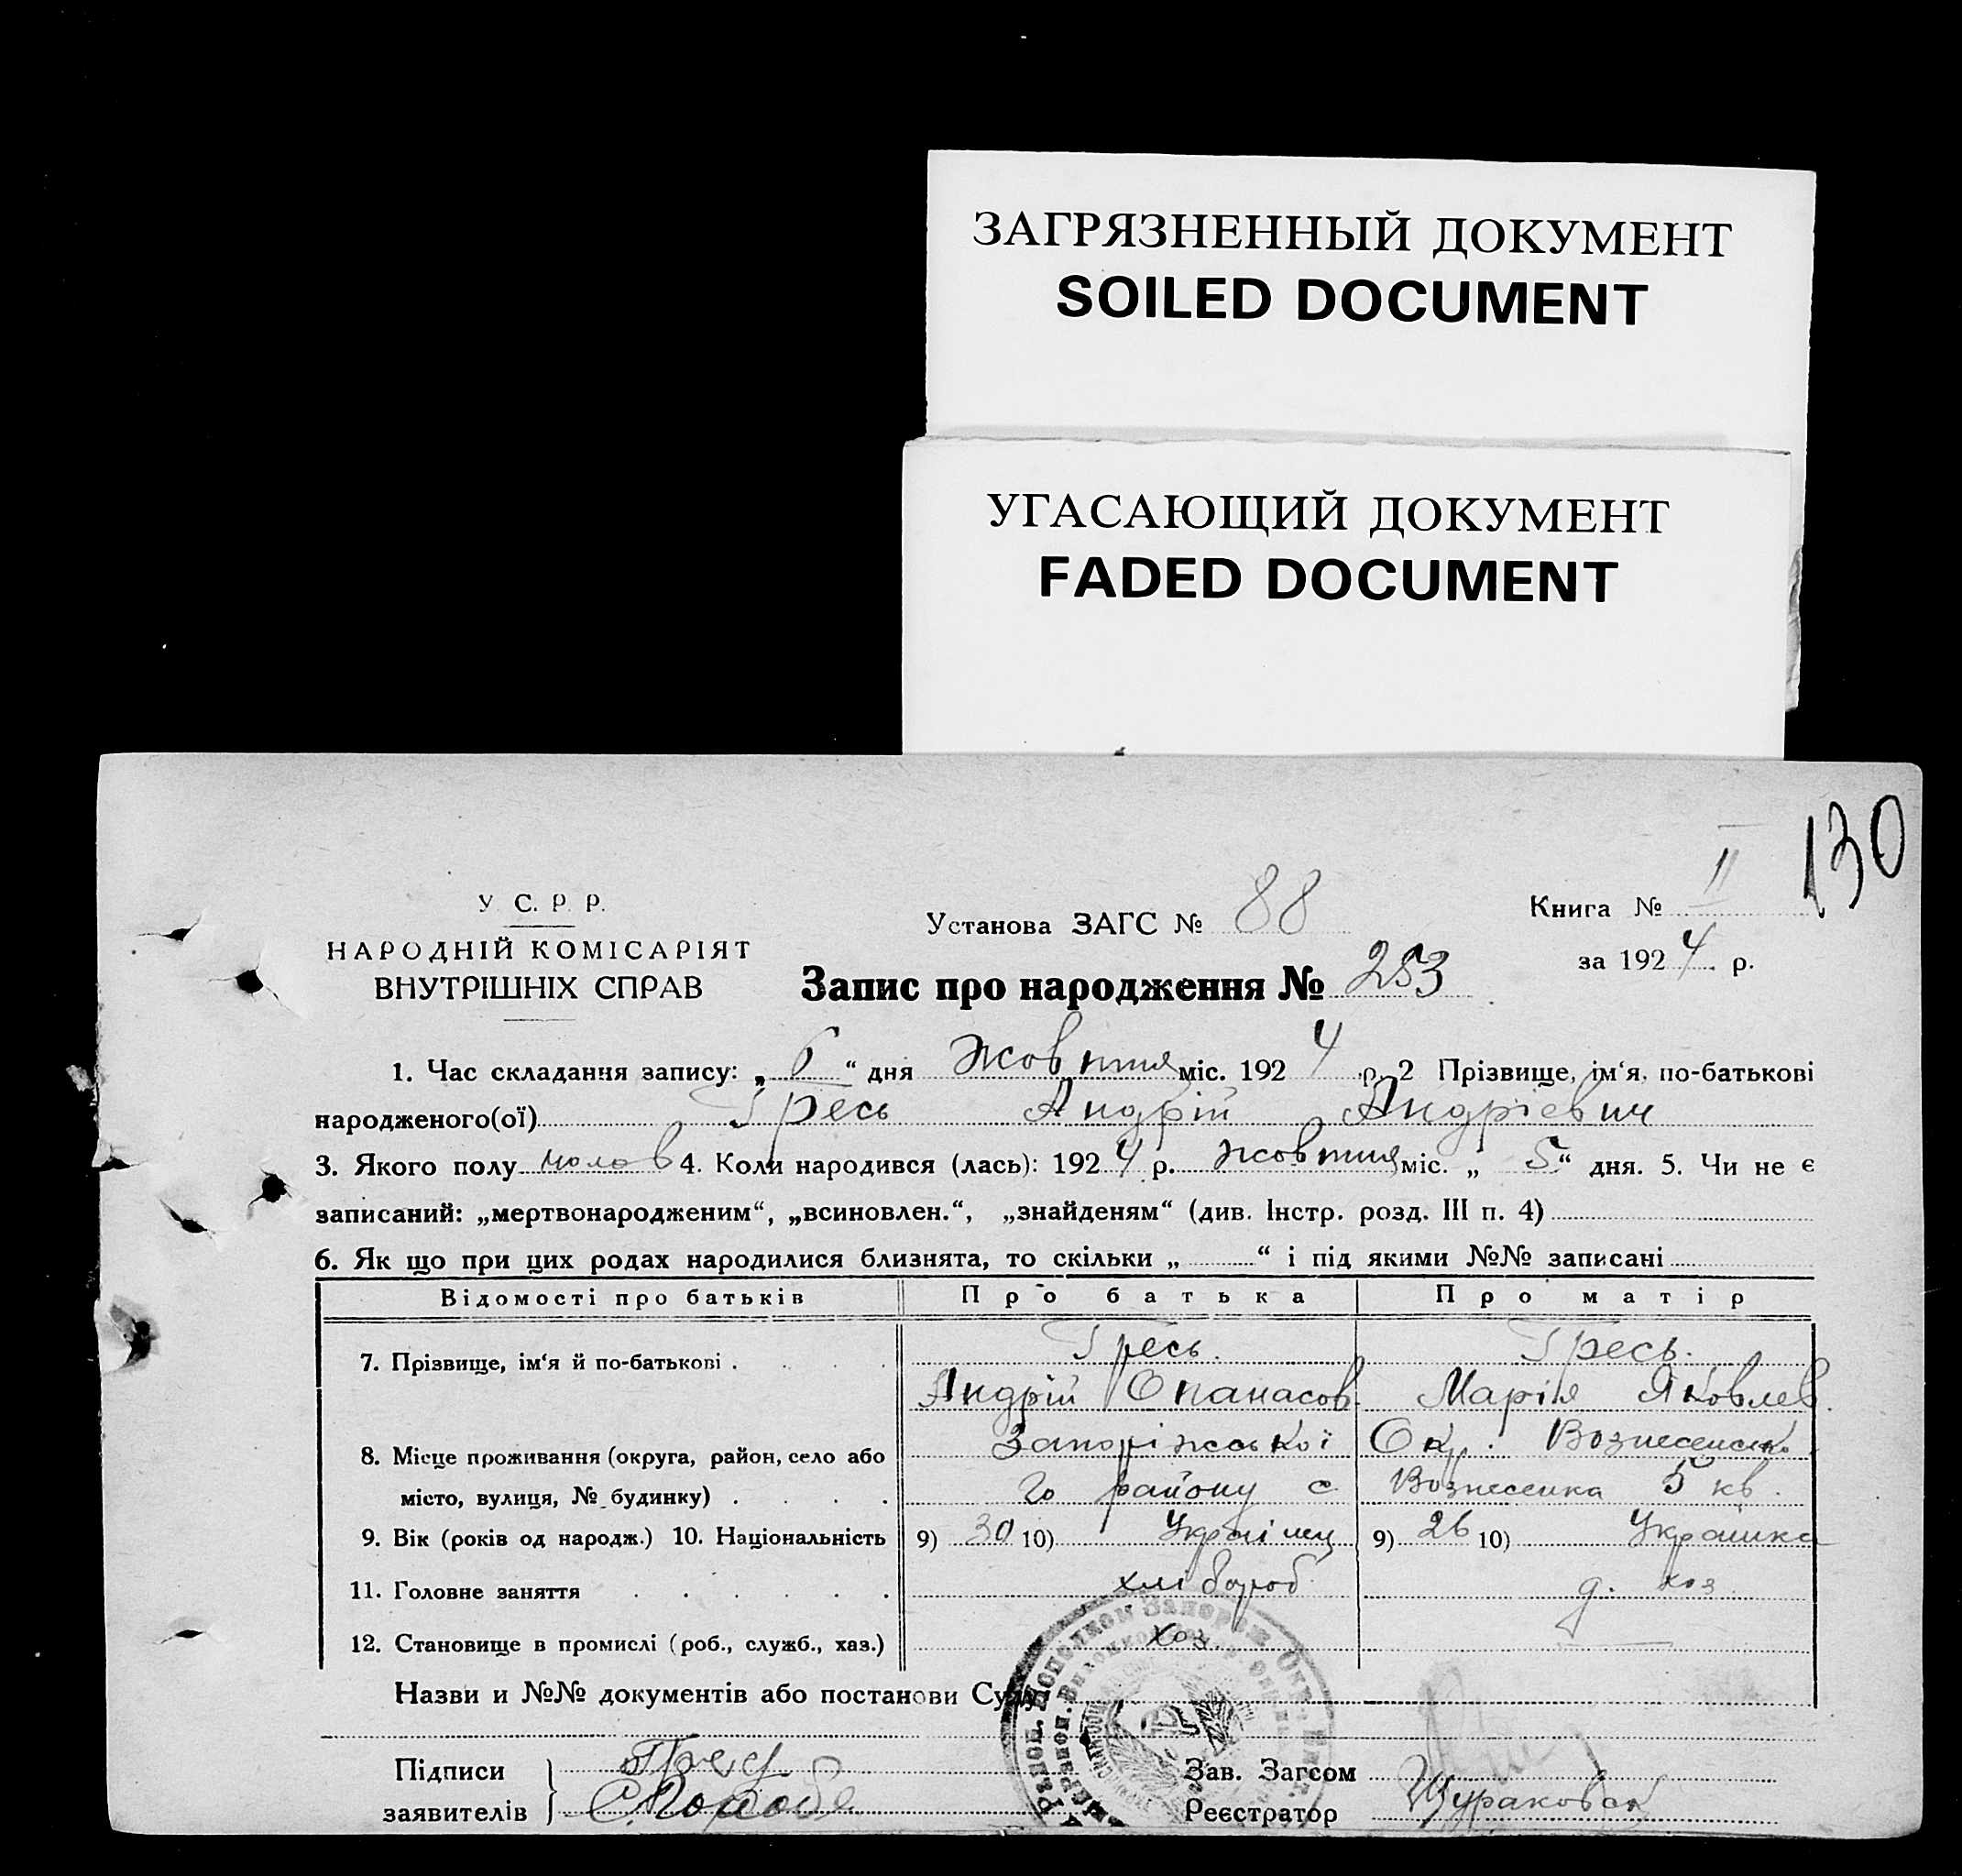 ЗАГРЯЗНЕННЫЙ ДОКУМЕНТ
SOILED DOCUMENT
УГАСАЮЩИЙ ДОКУМЕНТ
FADED DOCUMENT
130
У. С. Р. Р.
НАРОДНІЙ КОМІСАРІЯТ
ВНУТРІШНІХ СПРАВ
Установа ЗАГС № 88
Книга № II
за 1924 р.
Запис про народження № 253
1. Час складання запису: „ 6 “ дня Жовтня міс. 1924 р. 2 Прізвище, ім‘я, по-батькові
народженого(ої) Гресь Андрій Андрієвич
3. Якого полу 4. Коли народився (лась): 1924 р. жовтня міс. „ 5 “ дня. 5. Чи не є
записаний: „мертвонародженим“, „всиновлен.“, „знайденям“ (див. Інстр. розд. III п. 4)
6. Як що при цих родах народилися близнята, то скільки „ “ і під якими №№ записані
Відомості про батьків Про батька Про матір
7. Прізвище, ім‘я й по-батькові . Гресь. Гресь.
Андрій Опанасов. Марія Яковлев.
8. Місце проживання (округа, район, село або Запоріжської Окр. Вознесенсько
місто, вулиця, № будинку) . го району с. Вознесенка 5 кв.
9. Вік (років од народж.) 10. Національність 9) 30 10) Українц 9) 26 10) Українка
11. Головне заняття хлібороб д. хоз.
12. Становище в промислі (роб., служб., хаз.) хоз.
Назви и №№ документів або постанови Суду
Підписи Гресь Зав. Загсом
заявителів Реєстратор